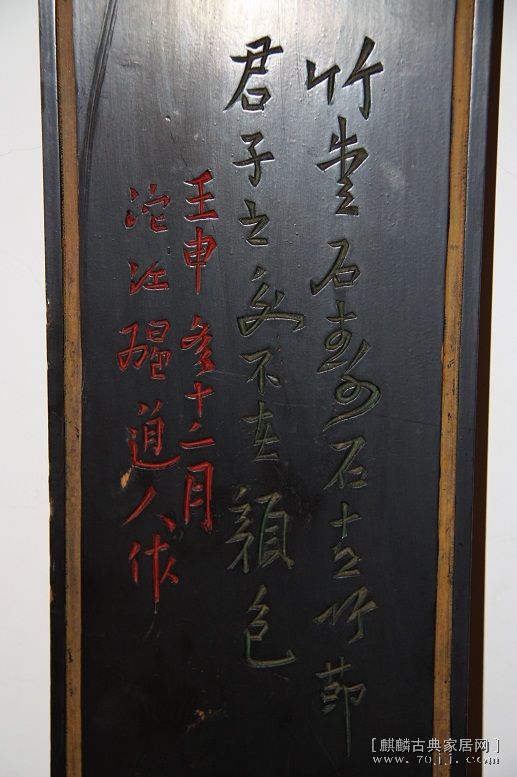 竹石壽石竹節
君子之交不在顏色
壬申冬十二月
沱江道人作
[麒麟古典家居网]
www.70jj.com